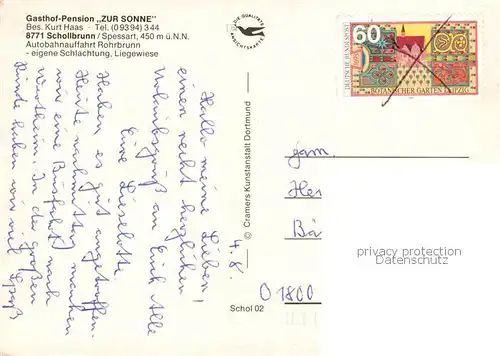 Gasthof-Pension „ZUR SONNE"
Bes. Kurt Haas · Tel. (09394) 344
8771 Schollbrunn / Spessart, 450 m ü.N.N.
Autobahnauffahrt Rohrbrunn
- eigene Schlachtung, Liegewiese
DIE QUALITÄTS
ANSICHTSKARTE
60
DEUTSCHE BUNDESPOST
4.8.
Hallo meine Lieben!
einen recht herzlichen
Urlaubsgruß an Euch alle
Eine Lieselotte
Haben es gut angetroffen.
Heute nachmittag machen
wir eine Busfahrt nach
Wertheim. In der großen
Runde haben wir viel Spaß
© Cramers Kunstanstalt Dortmund
Schol 02
Fam.
Her
Bä
O 1800
privacy protection
Datenschutz